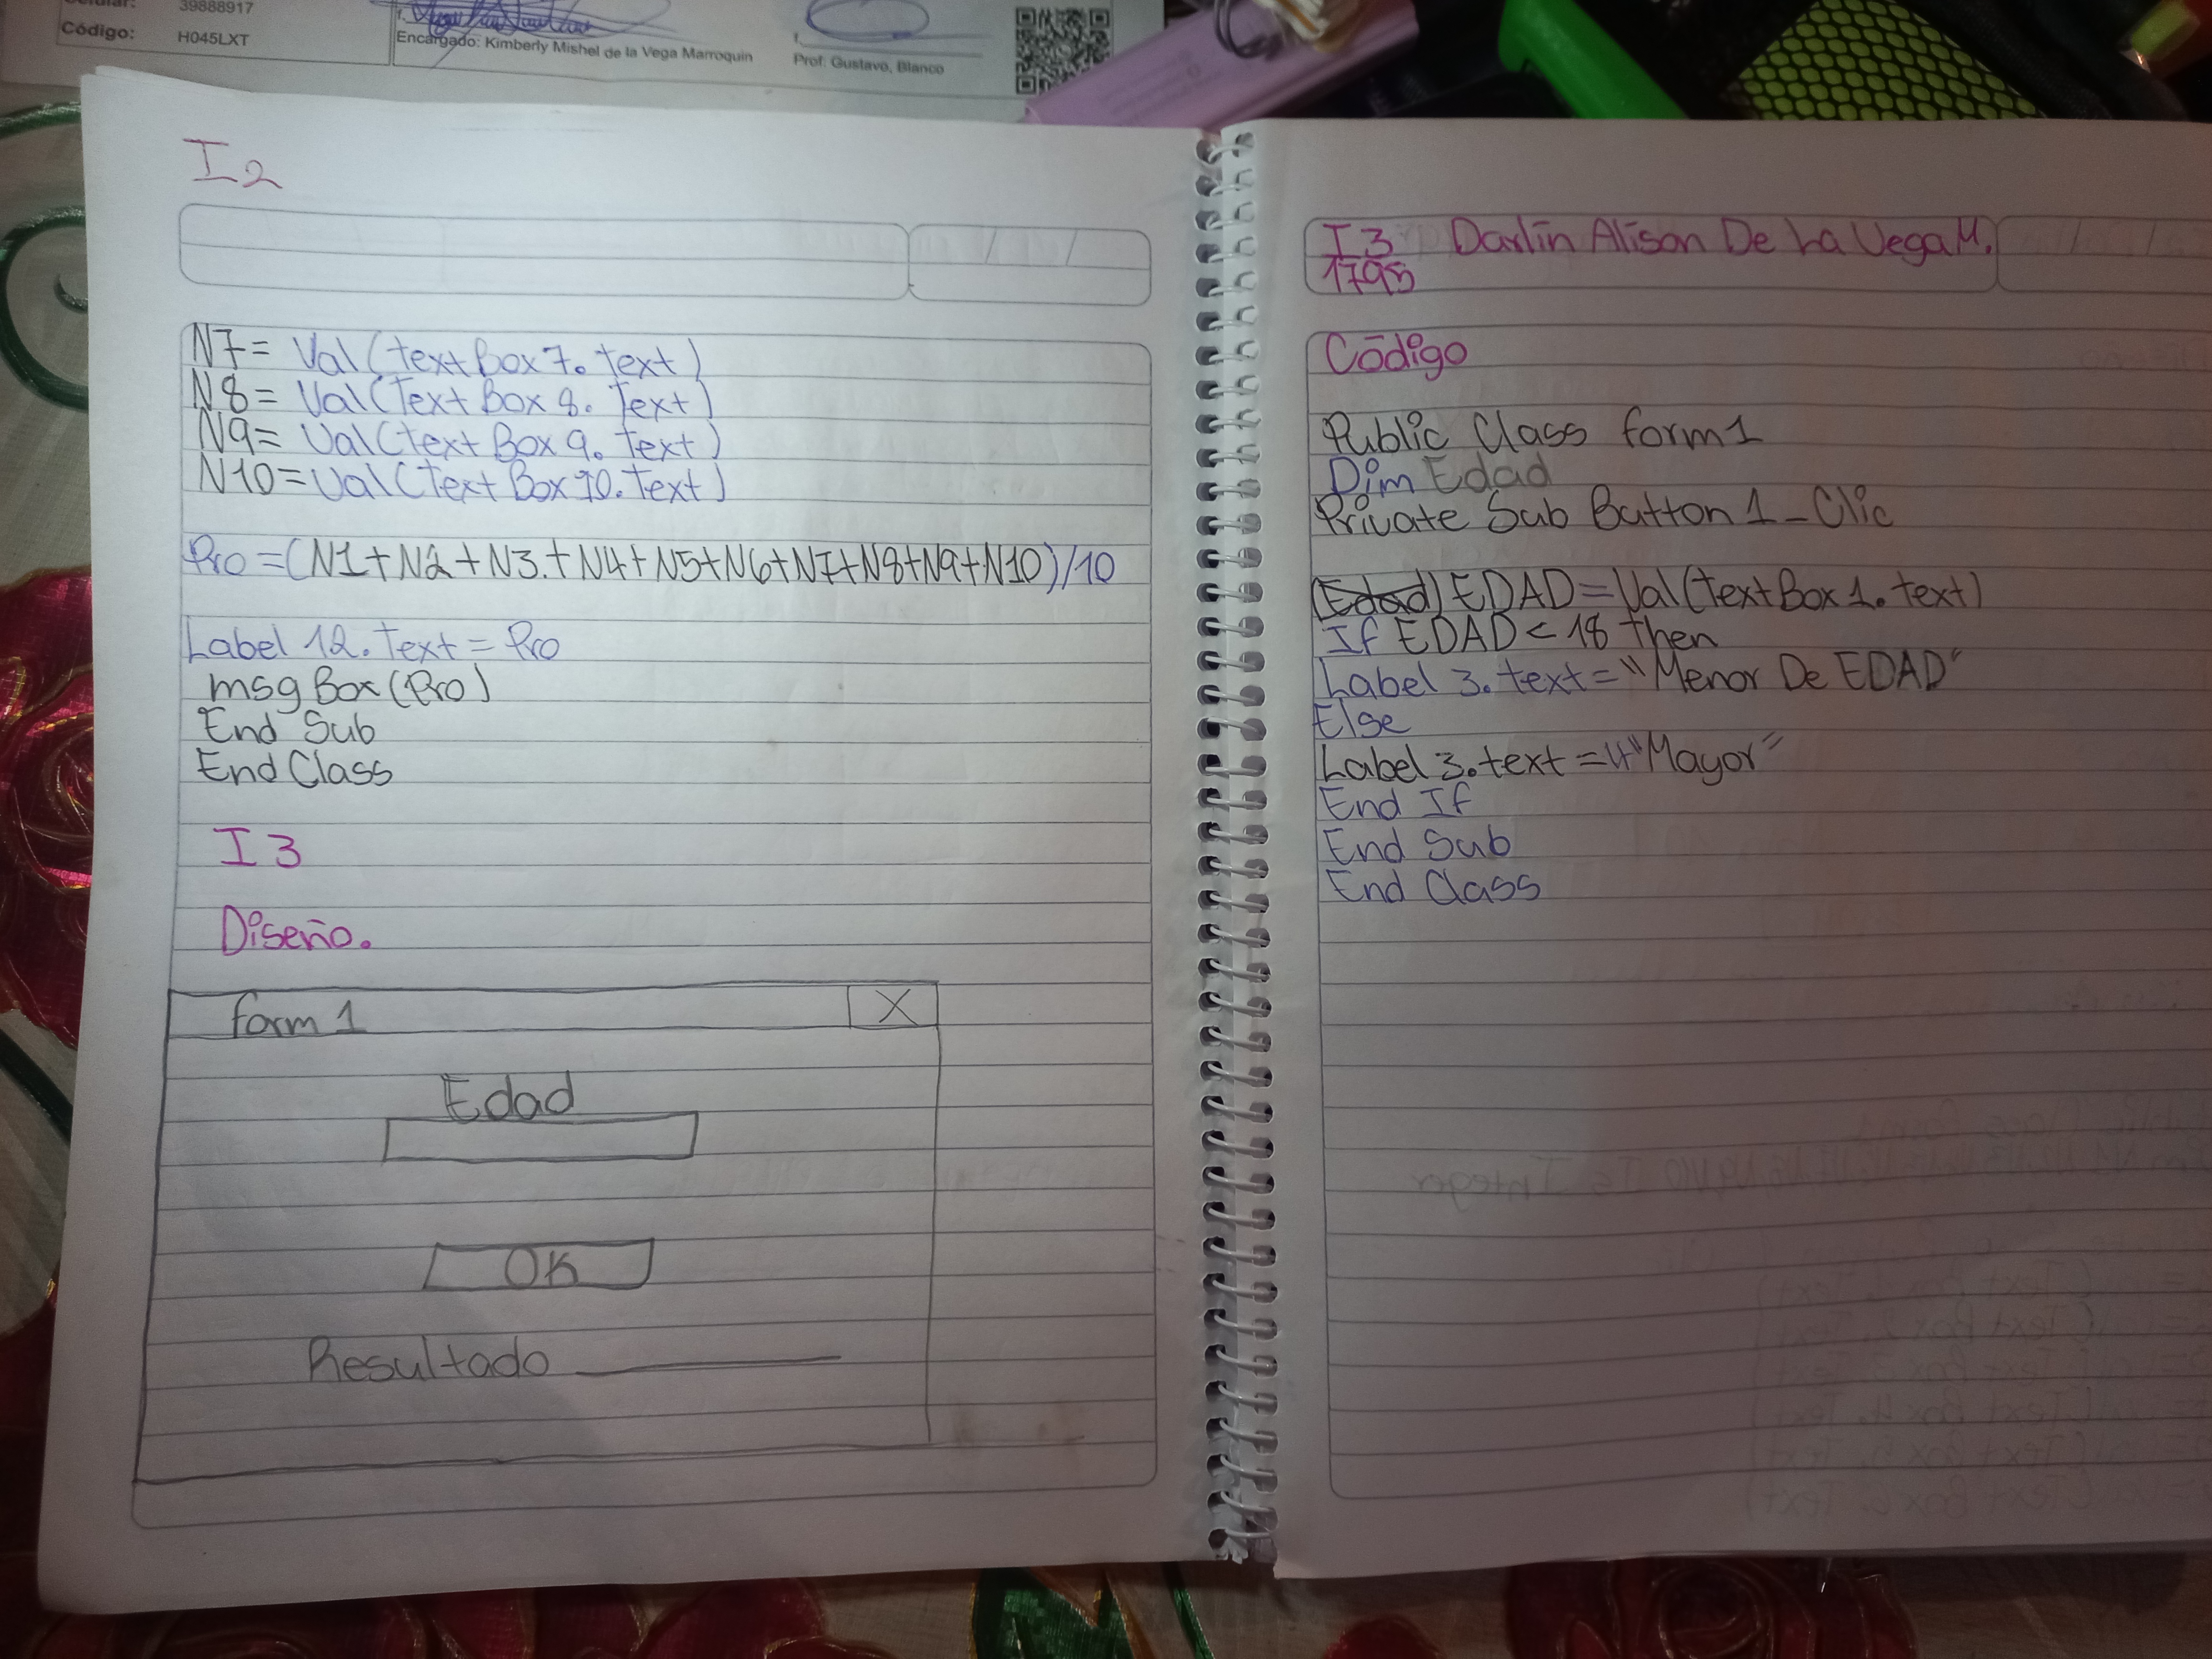 39888917
Código: H045LXT
Encargado: Kimberly Mishel de la Vega Marroquin
Prof. Gustavo, Blanco
I2
N7= Val(text Box 7. text)
N8= Val(Text Box 8. Text)
N9= Val(text Box 9. text)
N10=Val(Text Box 10. Text)
Pro =(N1+N2+N3.+N4+N5+N6+N7+N8+N9+N10)/10
Label 12. Text = Pro
msg Box (Pro)
End Sub
End Class
I3
Diseño.
form 1 X
Edad
OK
Resultado
I3 Darlin Alison De La Vega M.
1795
Código
Public Class form1
Dim Edad
Private Sub Button 1_Clic
(Edad) EDAD=Val(text Box 1. text)
If EDAD < 18 then
Label 3. text = "Menor De EDAD"
Else
Label 3. text = "Mayor"
End If
End Sub
End Class